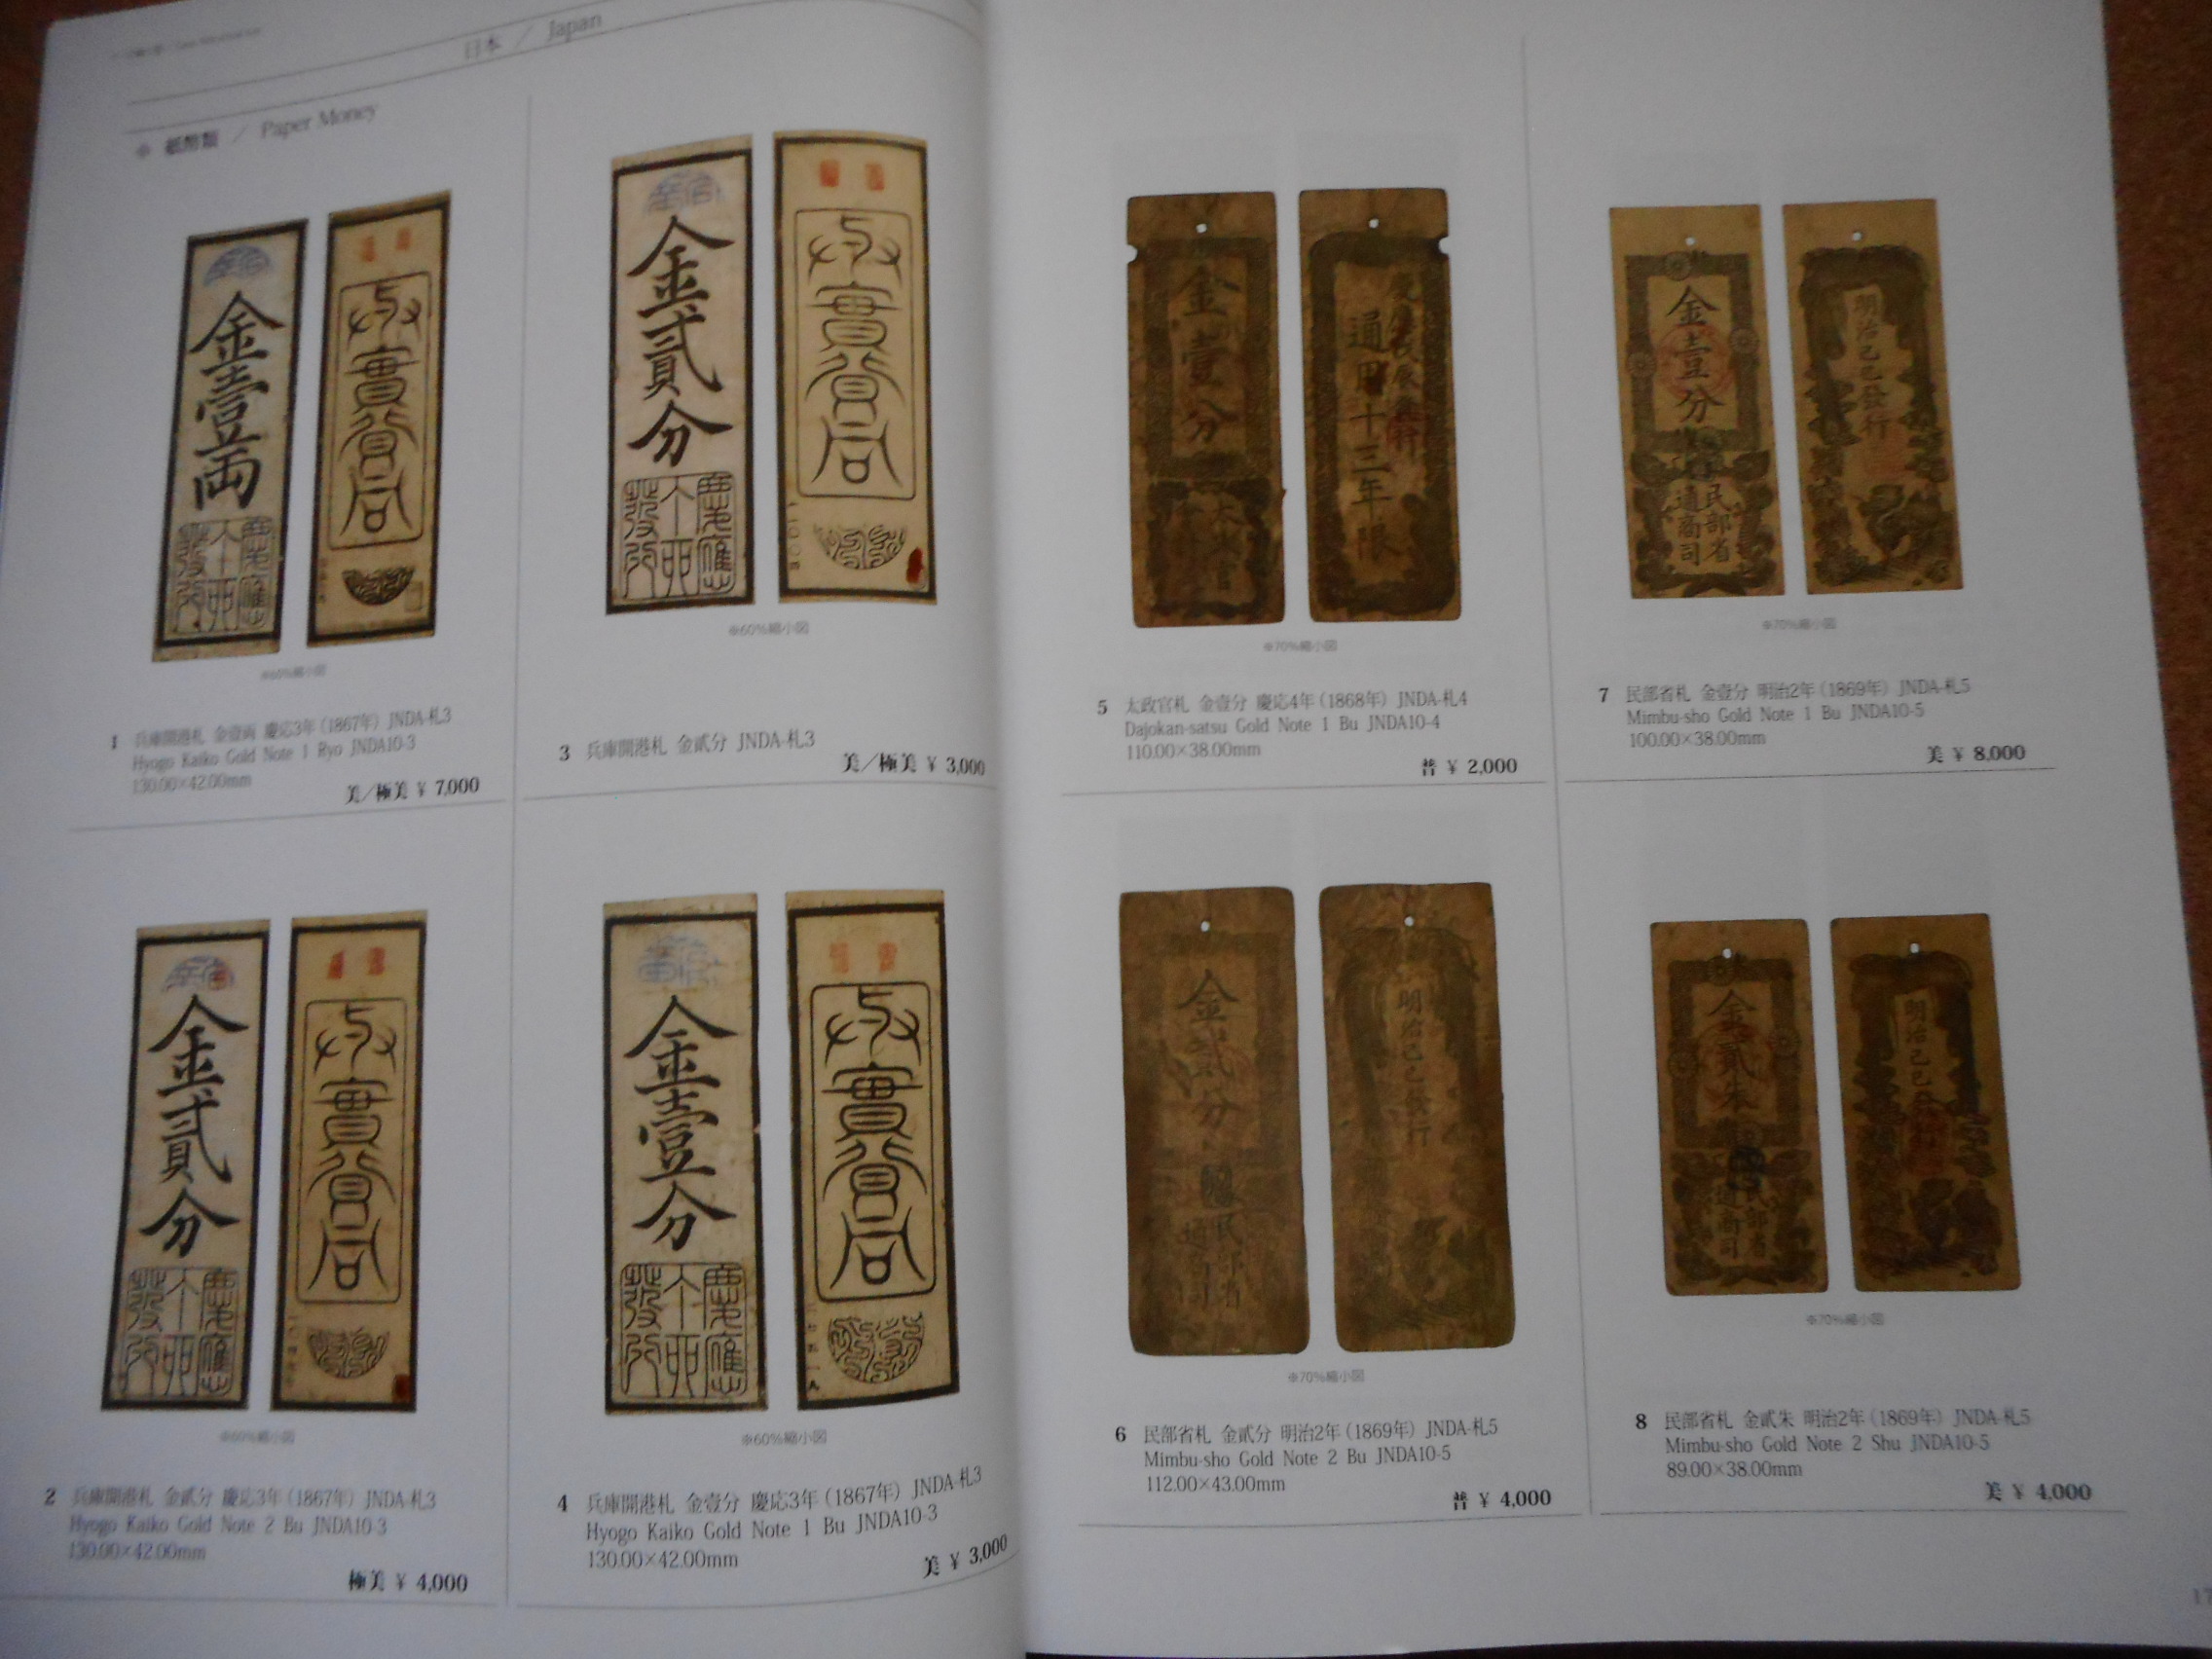 日本 / Japan
紙幣類 / Paper Money
金壹両
※60%縮小図
1 兵庫開港札 金壹両 慶応3年(1867年) JNDA-札3
Hyogo Kaiko Gold Note 1 Ryo JNDA10-3
130.00×42.00mm
美/極美 ¥ 7,000
金貳分
※60%縮小図
2 兵庫開港札 金貳分 慶応3年(1867年) JNDA-札3
Hyogo Kaiko Gold Note 2 Bu JNDA10-3
130.00×42.00mm
極美 ¥ 4,000
金貳分
※60%縮小図
3 兵庫開港札 金貳分 JNDA-札3
美/極美 ¥ 3,000
金壹分
※60%縮小図
4 兵庫開港札 金壹分 慶応3年(1867年) JNDA-札3
Hyogo Kaiko Gold Note 1 Bu JNDA10-3
130.00×42.00mm
美 ¥ 3,000
金壹分
通用十三年限
※70%縮小図
5 太政官札 金壹分 慶応4年(1868年) JNDA-札4
Dajokan-satsu Gold Note 1 Bu JNDA10-4
110.00×38.00mm
普 ¥ 2,000
金貳分
明治己巳發行
※70%縮小図
6 民部省札 金貳分 明治2年(1869年) JNDA-札5
Mimbu-sho Gold Note 2 Bu JNDA10-5
112.00×43.00mm
普 ¥ 4,000
金壹分
民部省
通商司
明治己巳發行
※70%縮小図
7 民部省札 金壹分 明治2年(1869年) JNDA-札5
Mimbu-sho Gold Note 1 Bu JNDA10-5
100.00×38.00mm
美 ¥ 8,000
金貳朱
※70%縮小図
8 民部省札 金貳朱 明治2年(1869年) JNDA-札5
Mimbu-sho Gold Note 2 Shu JNDA10-5
89.00×38.00mm
美 ¥ 4,000